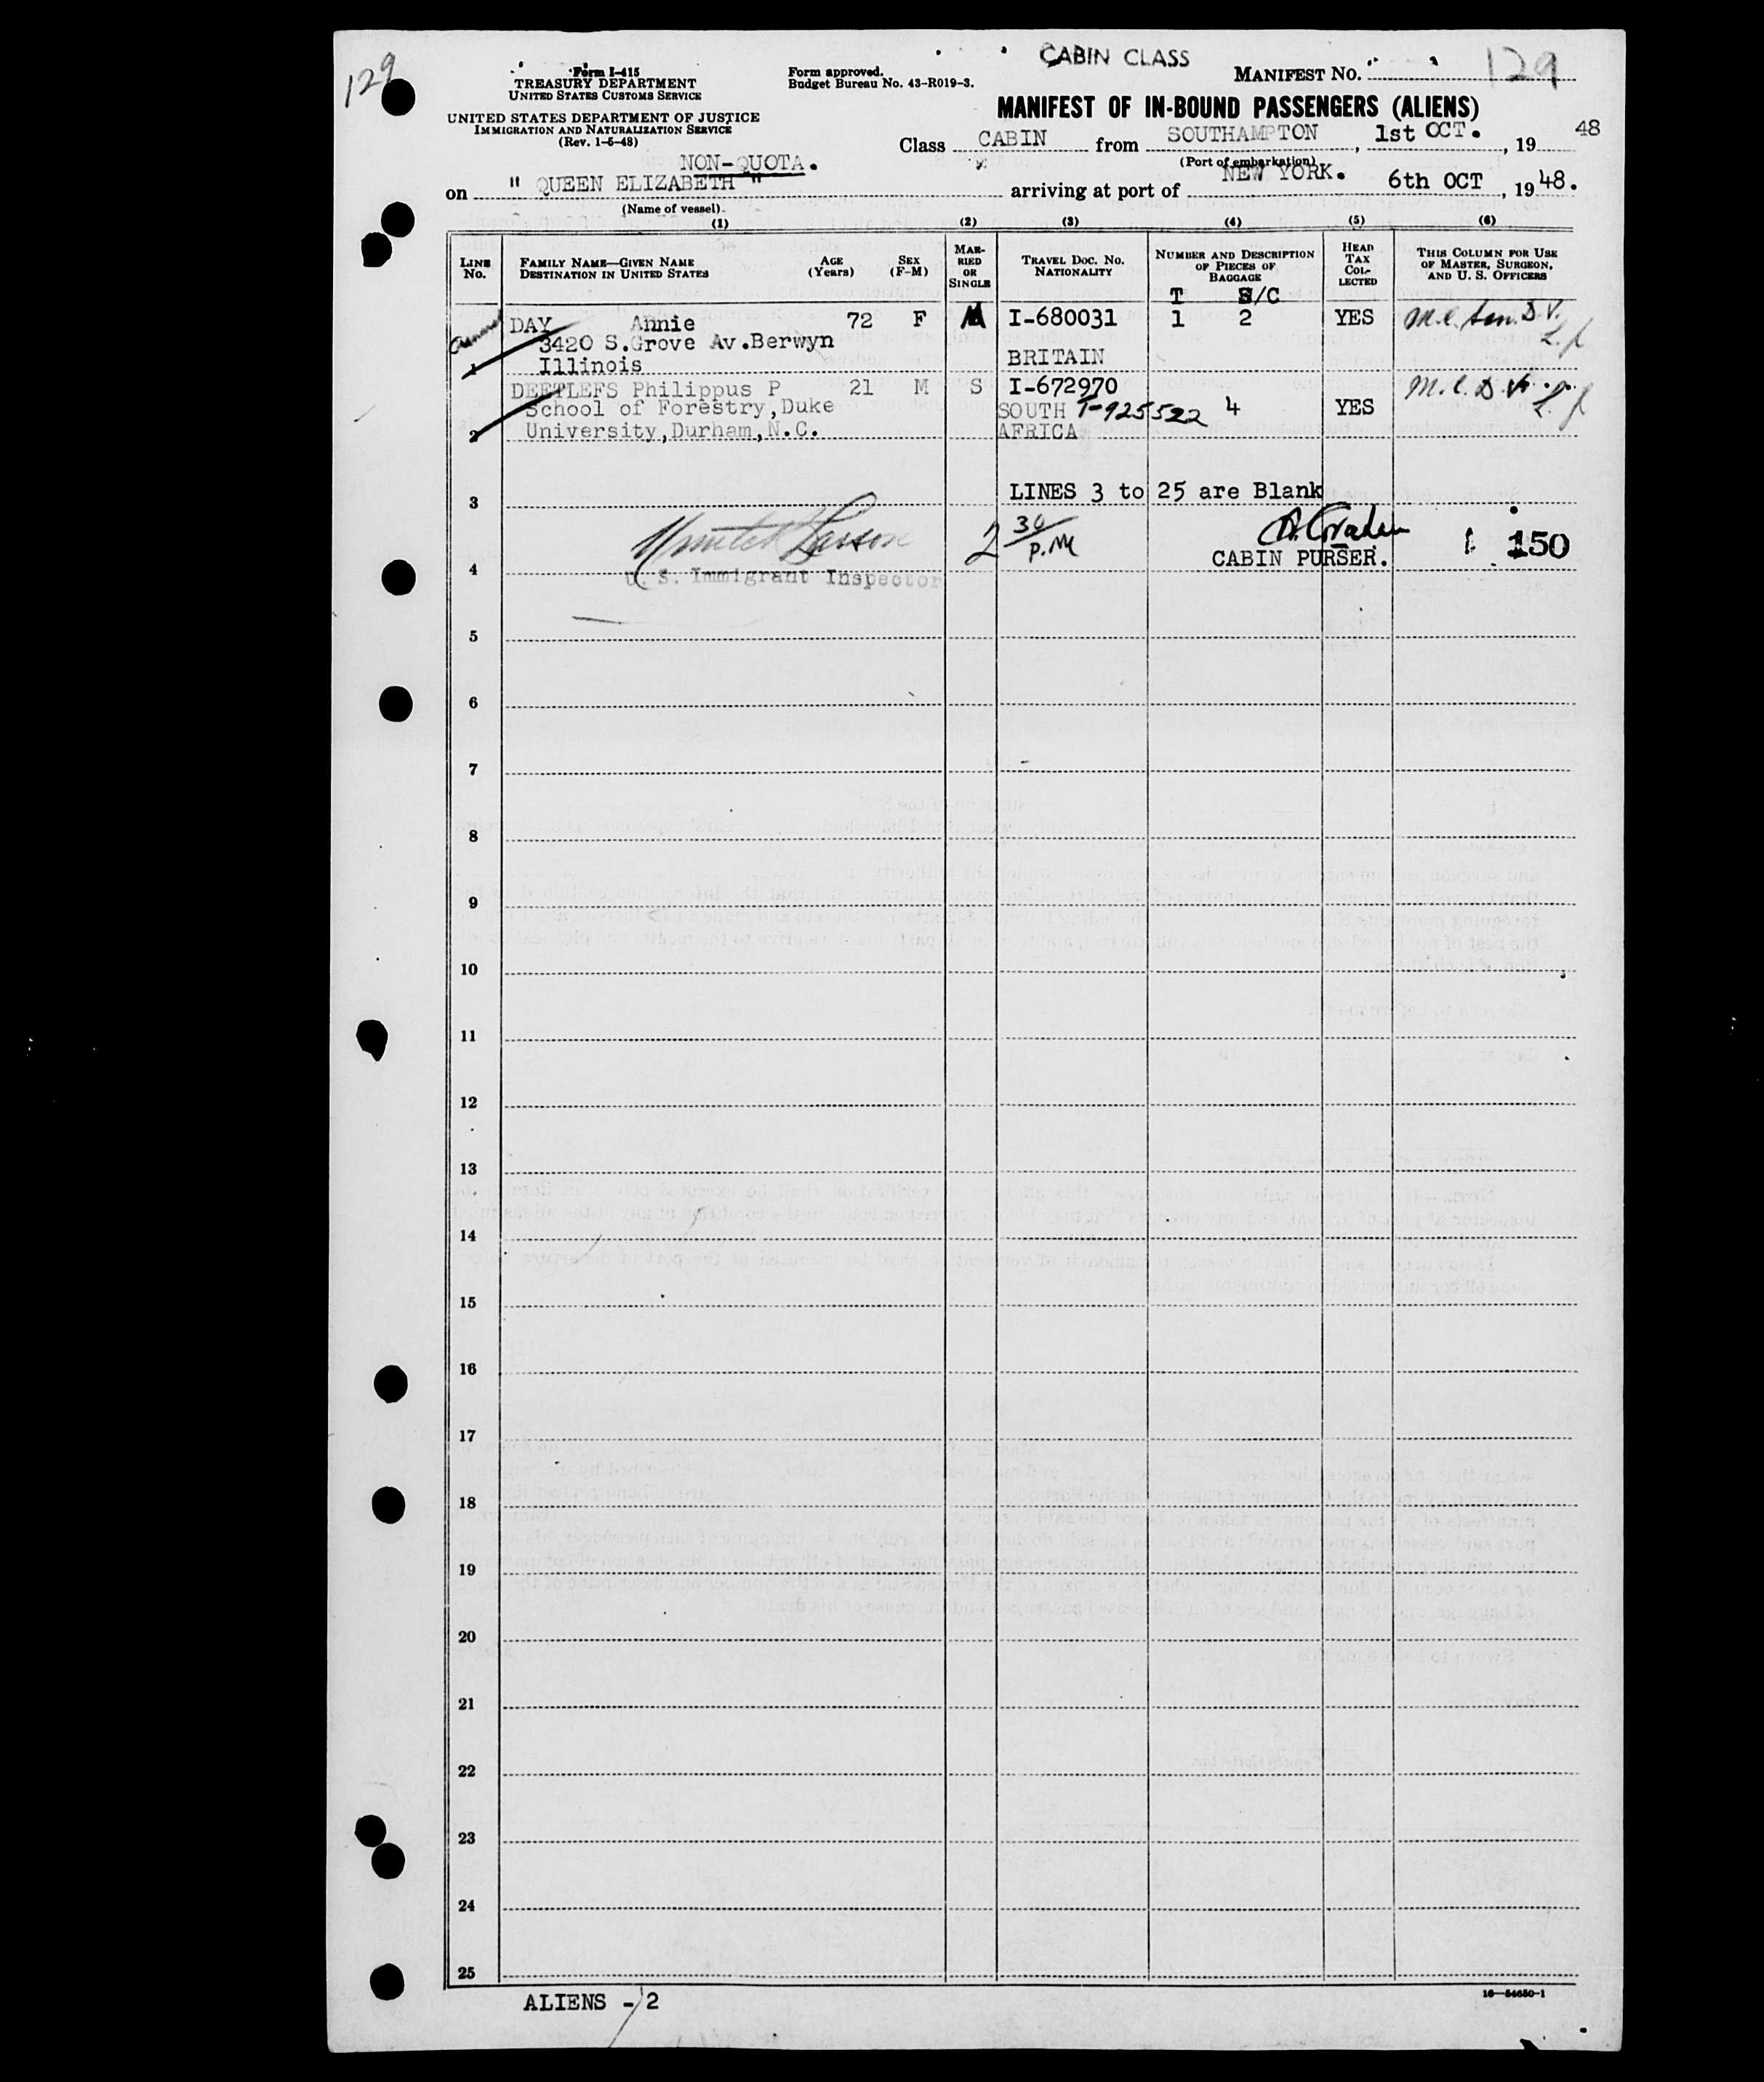 129
CABIN CLASS
Form I-415
TREASURY DEPARTMENT
UNITED STATES CUSTOMS SERVICE
Form approved.
Budget Bureau No. 43-R019-3.
MANIFEST NO. 129
UNITED STATES DEPARTMENT OF JUSTICE
IMMIGRATION AND NATURALIZATION SERVICE
(Rev. 1-6-48)
MANIFEST OF IN-BOUND PASSENGERS (ALIENS)
Class CABIN from SOUTHAMPTON, 1st OCT., 19 48
(Port of embarkation)
NON-QUOTA.
on " QUEEN ELIZABETH " arriving at port of NEW YORK. 6th OCT, 19 48.
(Name of vessel)
(1) (2) (3) (4) (5) (6)
LINE No. FAMILY NAME—GIVEN NAME DESTINATION IN UNITED STATES AGE (Years) SEX (F-M) MARRIED OR SINGLE TRAVEL DOC. NO. NATIONALITY NUMBER AND DESCRIPTION OF PIECES OF BAGGAGE HEAD TAX COLLECTED THIS COLUMN FOR USE OF MASTER, SURGEON, AND U. S. OFFICERS
T S/C
DAY Annie 72 F M I-680031 1 2 YES
3420 S.Grove Av.Berwyn
1 Illinois BRITAIN
DEETLEFS Philippus P 21 M S I-672970
School of Forestry,Duke SOUTH T-925522 4 YES
2 University,Durham,N.C. AFRICA
3 LINES 3 to 25 are Blank
2 30/P.M 150
4 U. S. Immigrant Inspector CABIN PURSER.
5
6
7
8
9
10
11
12
13
14
15
16
17
18
19
20
21
22
23
24
25
ALIENS - 2
16—54650-1